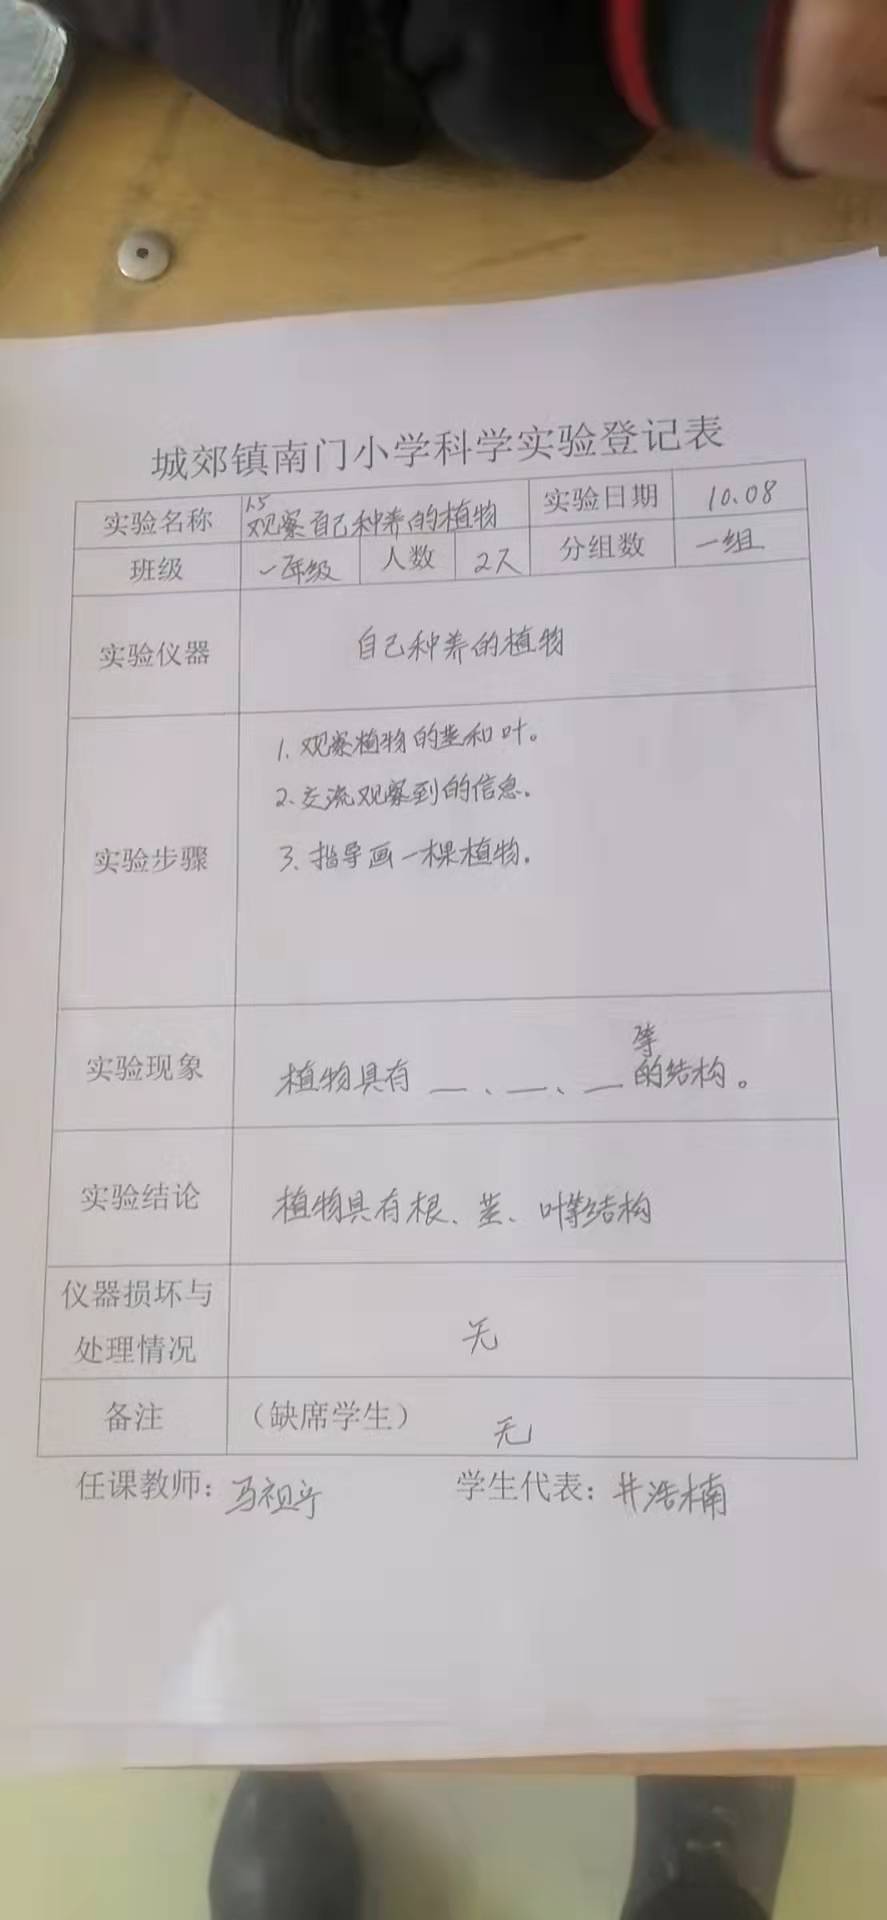 城郊镇南门小学科学实验登记表
实验名称 1.5 观察自己种养的植物 实验日期 10.08
班级 一年级 人数 2人 分组数 一组
实验仪器 自己种养的植物
实验步骤
1. 观察植物的茎和叶。
2. 交流观察到的信息。
3. 指导画一棵植物。
实验现象 植物具有 __、__、__ 等的结构。
实验结论 植物具有根、茎、叶等结构
仪器损坏与
处理情况 无
备注 （缺席学生） 无
任课教师: 马祖宁 学生代表: 井浩楠